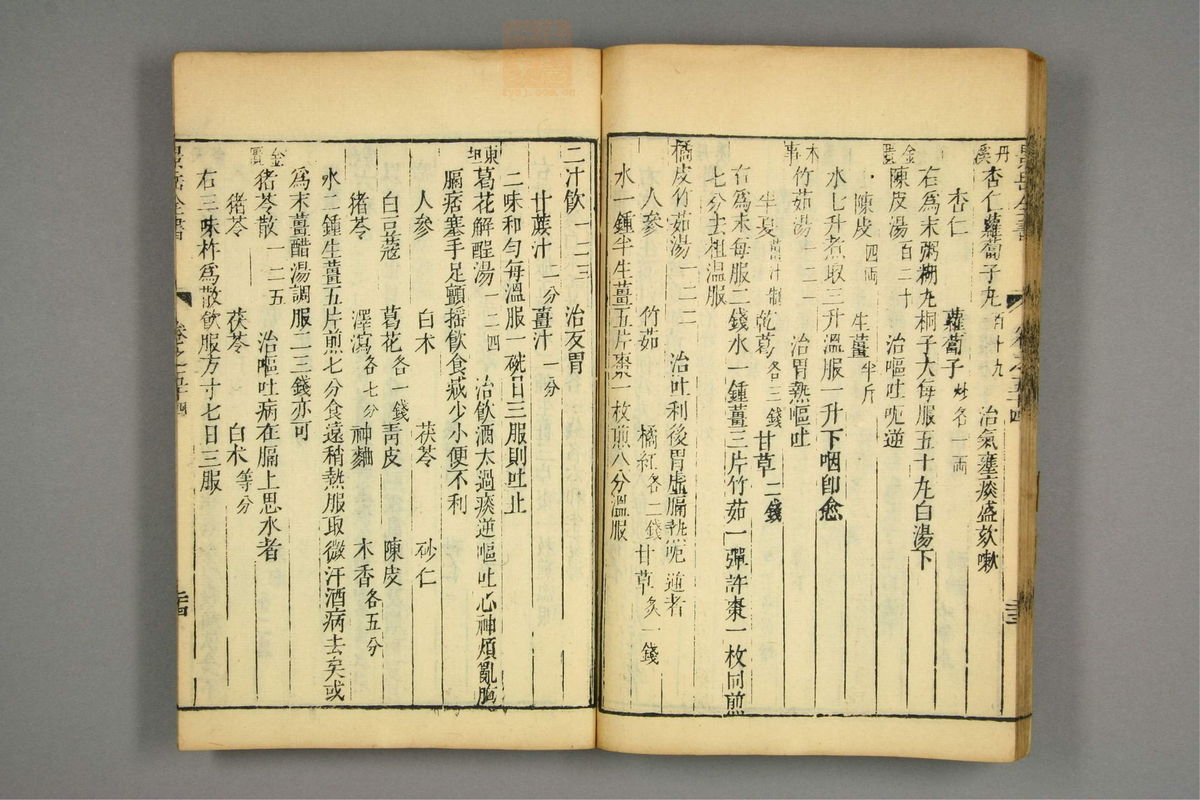 景岳全書 卷之五十四 三十三
丹溪 杏仁蘿蔔子丸 百十九 治氣壅痰盛欬嗽
杏仁 蘿蔔子 炒各一兩
右爲末粥糊丸桐子大每服五十丸白湯下
金匱 陳皮湯 百二十 治嘔吐呃逆
陳皮 四兩 生薑 半斤
水七升煮取三升溫服一升下咽卽愈
本事 竹茹湯 一二一 治胃熱嘔吐
半夏 薑汁制 乾葛 各三錢 甘草 二錢
右爲末每服二錢水一鍾薑三片竹茹一彈許棗一枚同煎
七分去柤溫服
橘皮竹茹湯 一二二 治吐利後胃虛膈熱呃逆者
人參 竹茹 橘紅 各二錢 甘草 炙一錢
水一鍾半生薑五片棗一枚煎八分溫服
二汁飲 一二三 治反胃
甘蔗汁 二分 薑汁 一分
二味和勻每溫服一碗日三服則吐止
東垣 葛花解酲湯 一二四 治飲酒太過痰逆嘔吐心神煩亂胸
膈痞塞手足顫搖飲食減少小便不利
人參 白朮 茯苓 砂仁
白豆蔻 葛花 各一錢 青皮 陳皮
豬苓 澤瀉 各七分 神麯 木香 各五分
水二鍾生薑五片煎七分食遠稍熱服取微汗酒病去矣或
爲末薑醋湯調服二三錢亦可
金匱 豬苓散 一二五 治嘔吐病在膈上思水者
豬苓 茯苓 白朮 等分
右三味杵爲散飲服方寸七日三服
景岳全書 卷之五十四 三十四